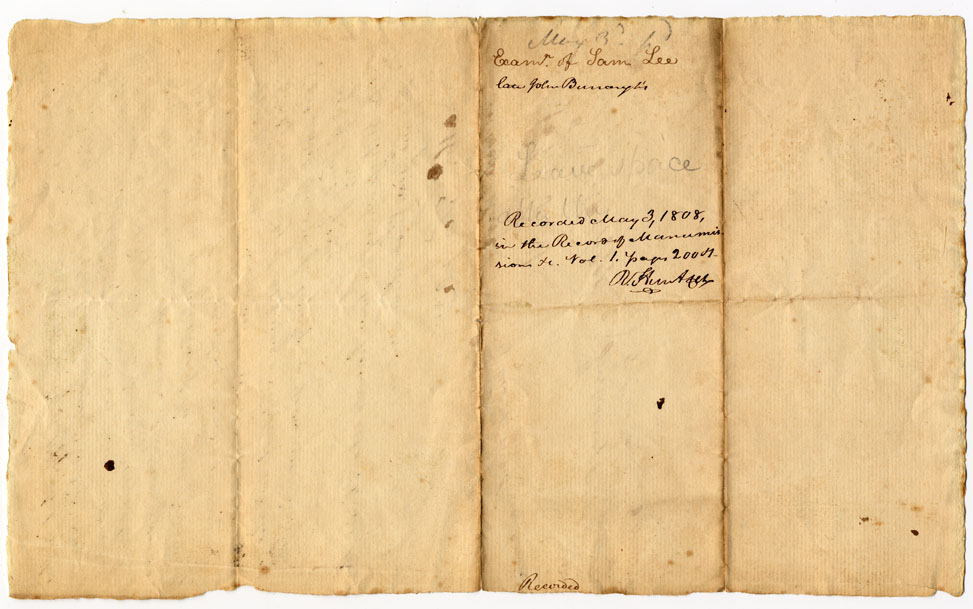 May 3d
Examn. of Sam Lee
late John Burrough's
Leave space
Recorded May 3, 1808,
in the Record of Manumis-
sions &c. Vol. 1. page 200
R. Hunt
Recorded